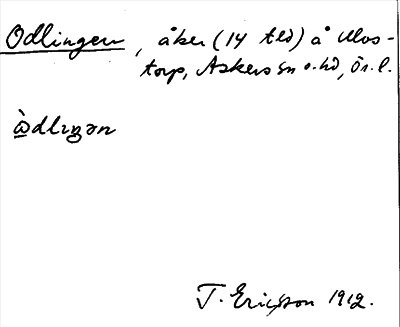 Odlingen, åker (14 tld) å Mos-
torp, Askers sn o. hd, Ör. l.
ὰdlıŋən
T. Ericsson 1912.